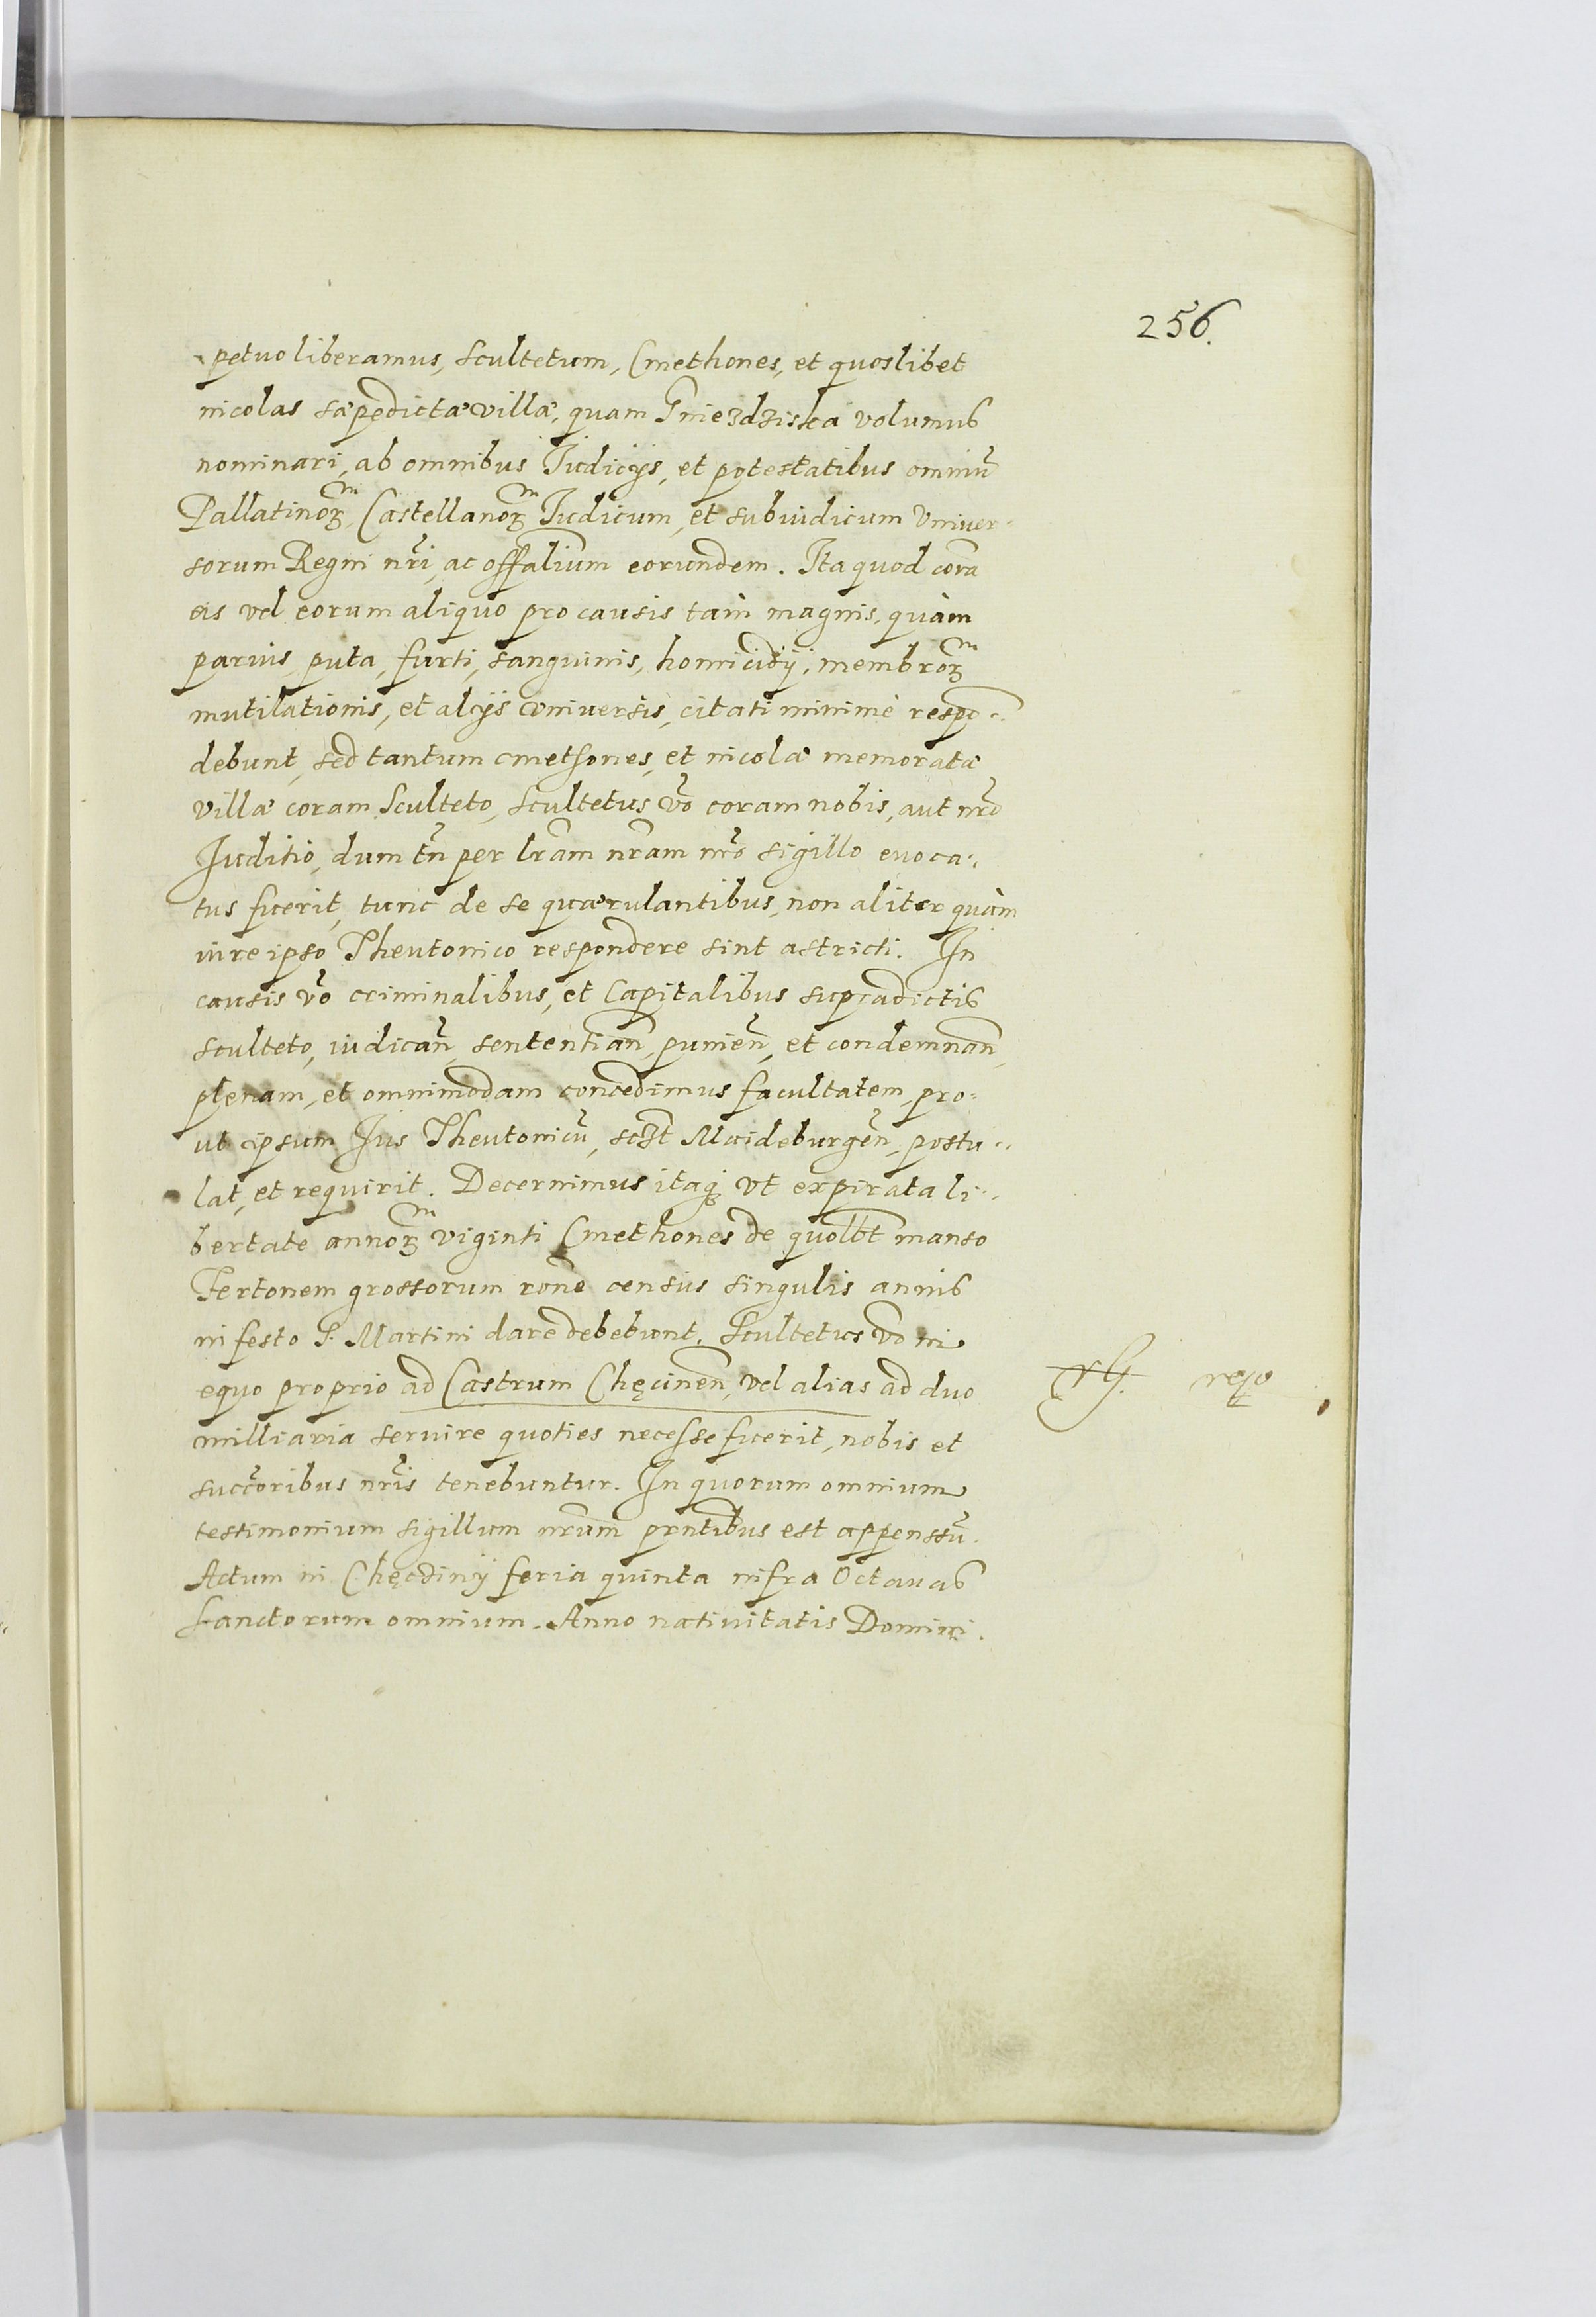 256.
petuo liberamus, scultetum, Cmethones, et quoslibet
incolas sæpedictæ villæ, quam Gniezdziska volumus
nominari, ab omnibus Iudicijs, et potestatibus omniũ
Pallatinoꝝ, Castellanoꝝ Iudicum, et subiudicum Vniver-
sorum Regni nr̃i, ac offalium eorundem. Ita quod corã
eis vel eorum aliquo pro causis tam magnis, quàm
paruis, puta, furti, sanguinis, homicidij, membroꝝ
mutilationis, et alijs vniversis, citati minimè respo-
debunt, sed tantum cmethones, et incolæ memoratæ
villæ coram Sculteto, scultetus ṽo coram nobis, aut nr̃o
Iuditio, dum tñ per lr̃am nr̃am nr̃o sigillo euoca-
tus fuerit, tunc de se quærulantibus, non aliter quàm
iure ipso Theutonico respondere sint astricti. In
causis ṽo criminalibus, et Capitalibus supradictis
sculteto, iudicañ, sententiañ, punieñ, et condemnañ,
plenam, et omnimodam concedimus facultatem, pro-
ut ipsum Ius Theutonicũ, Maideburgeñ, postu-
lat, et requirit. Decernimus itaqꝫ vt expirata li-
bertate annoꝝ viginti Cmethones de quolbt manso
Fertonem grossorum rone census singulis annis
in festo S. Martini dare debebunt. Scultetus ṽo in
equo proprio ad Castrum Chęcineñ, vel alias ad duo
milliaria seruire quoties necesse fuerit, nobis et
succoribus nr̃is tenebuntur. In quorum omnium
testimonium sigillum nr̃um prntibus est appensũ.
Actum in Chęcdiny feria quinta infra Octauas
sanctorum omnium. Anno natiuitatis Domini.